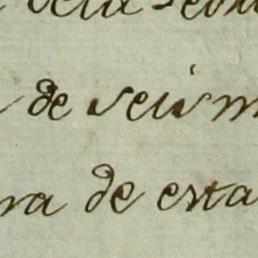 de seis m
ra de esta